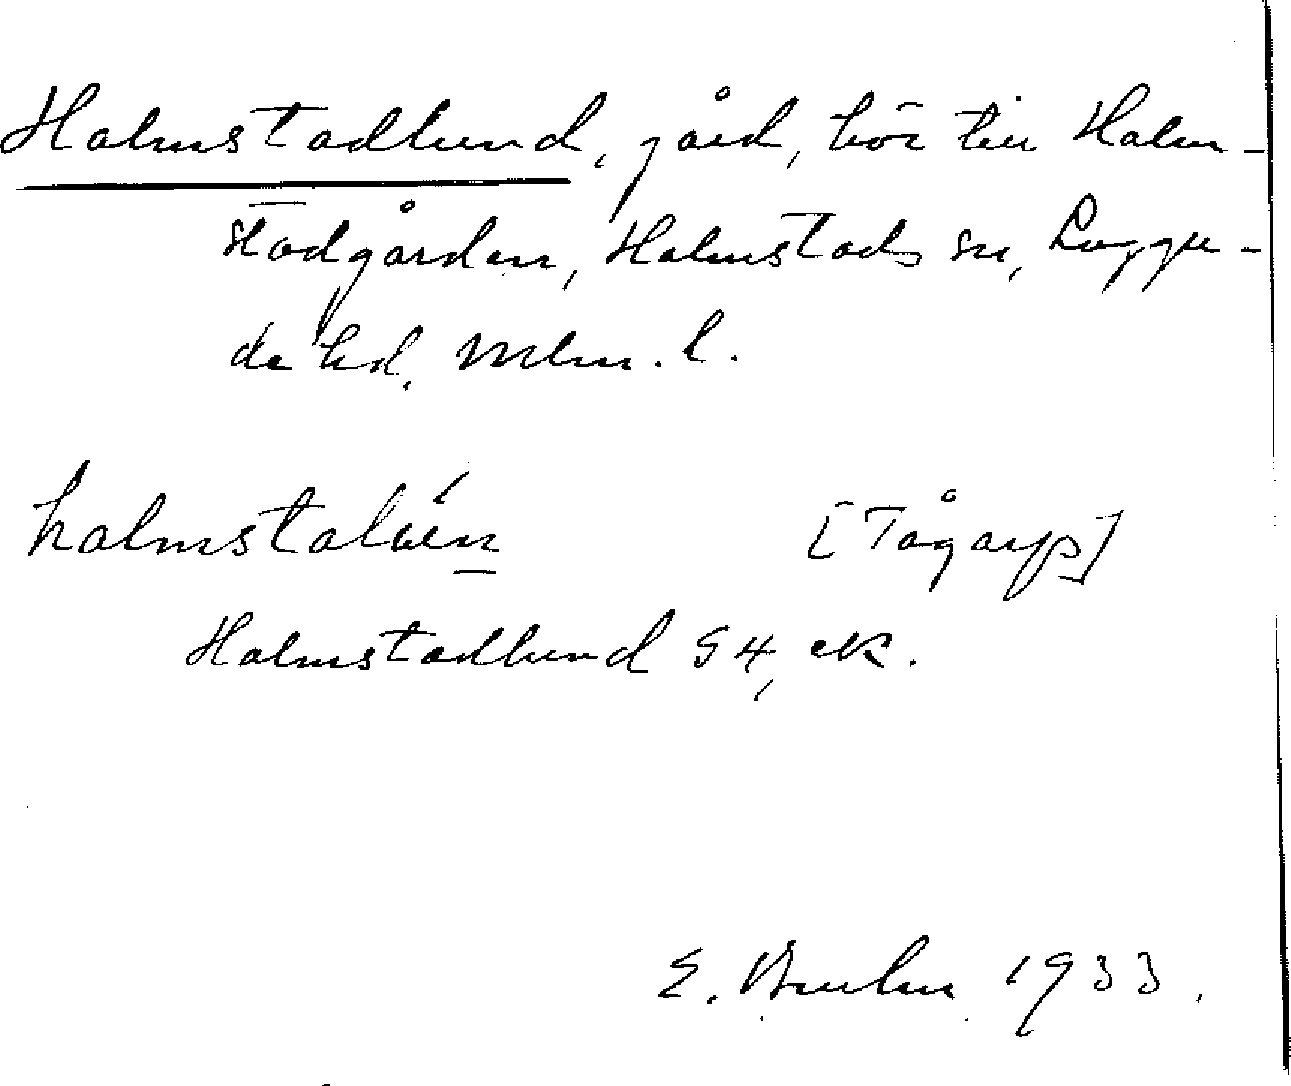 Halmstadlund, gård, hör till Halm-
stadgården, Halmstads sn, Luggu-
de hd, Mlm. l.
[Tågarp]
Halmstadlund G4, ek.
E. Bruhn 1933.